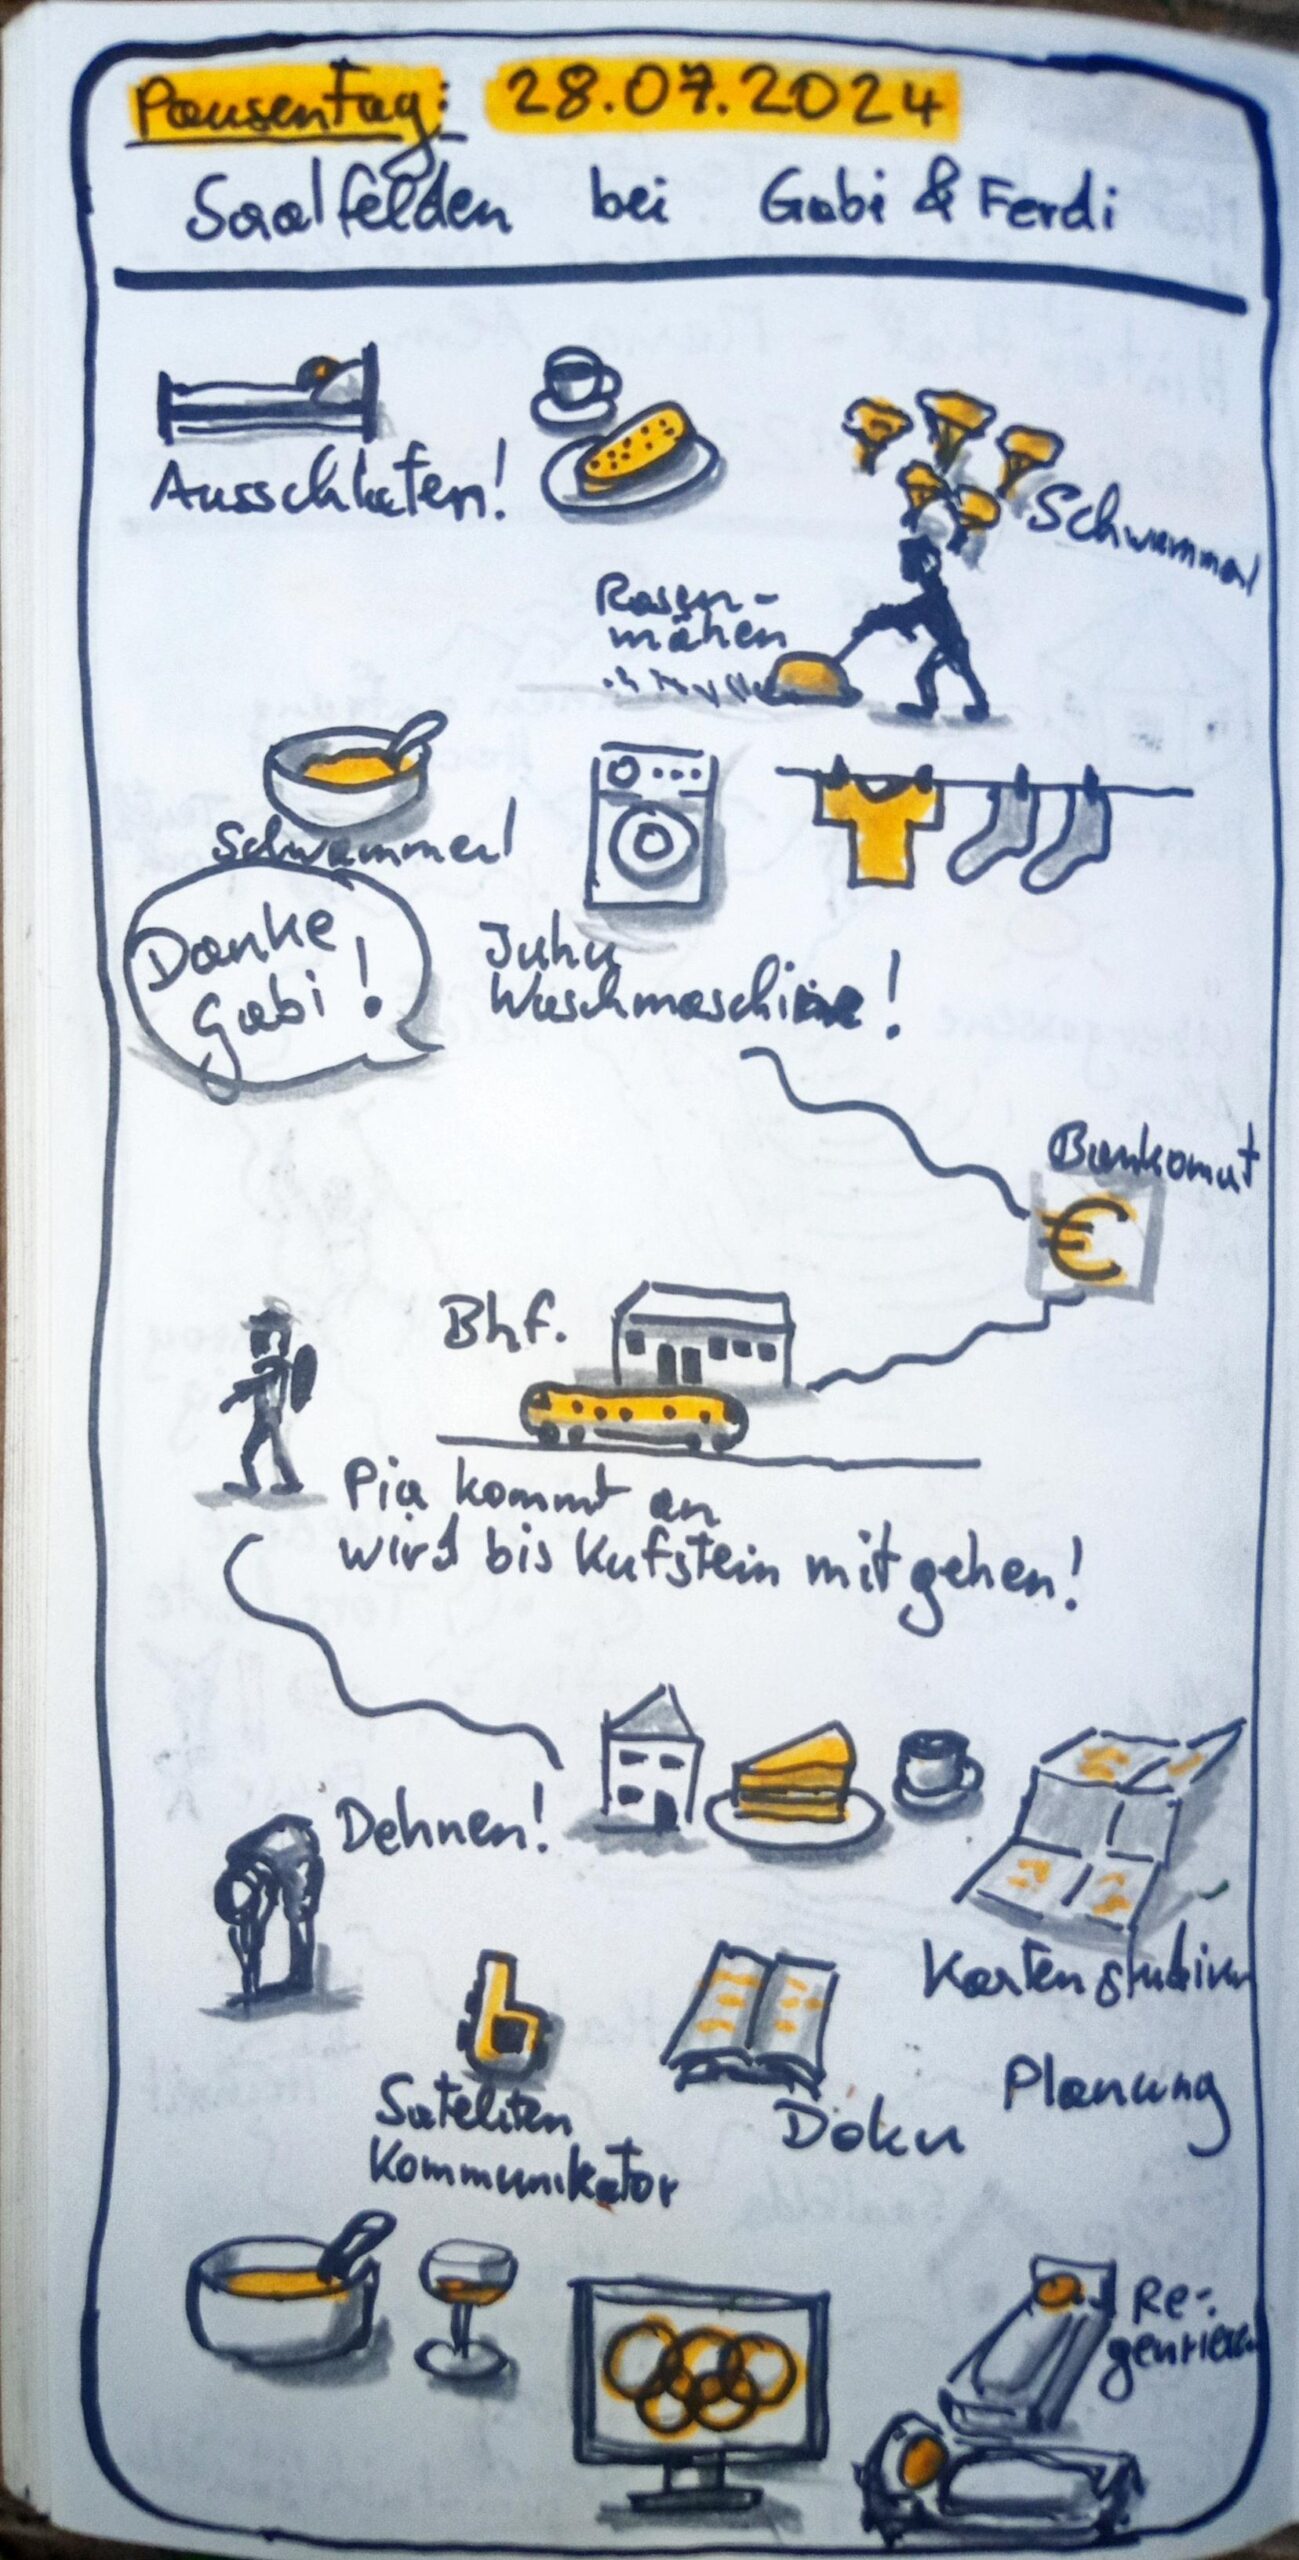 Pausentag: 28.07.2024
Saalfelden bei Gabi & Ferdi
Ausschlafen!
Schwammerl
Rasen-
mähen
Schwammerl
Danke
Gabi!
Juhu
Waschmaschine!
Bankomat
€
Bhf.
Pia kommt an
wird bis Kufstein mitgehen!
Dehnen!
Karten studieren
Sateliten
Kommunikator
Doku
Planung
Re-